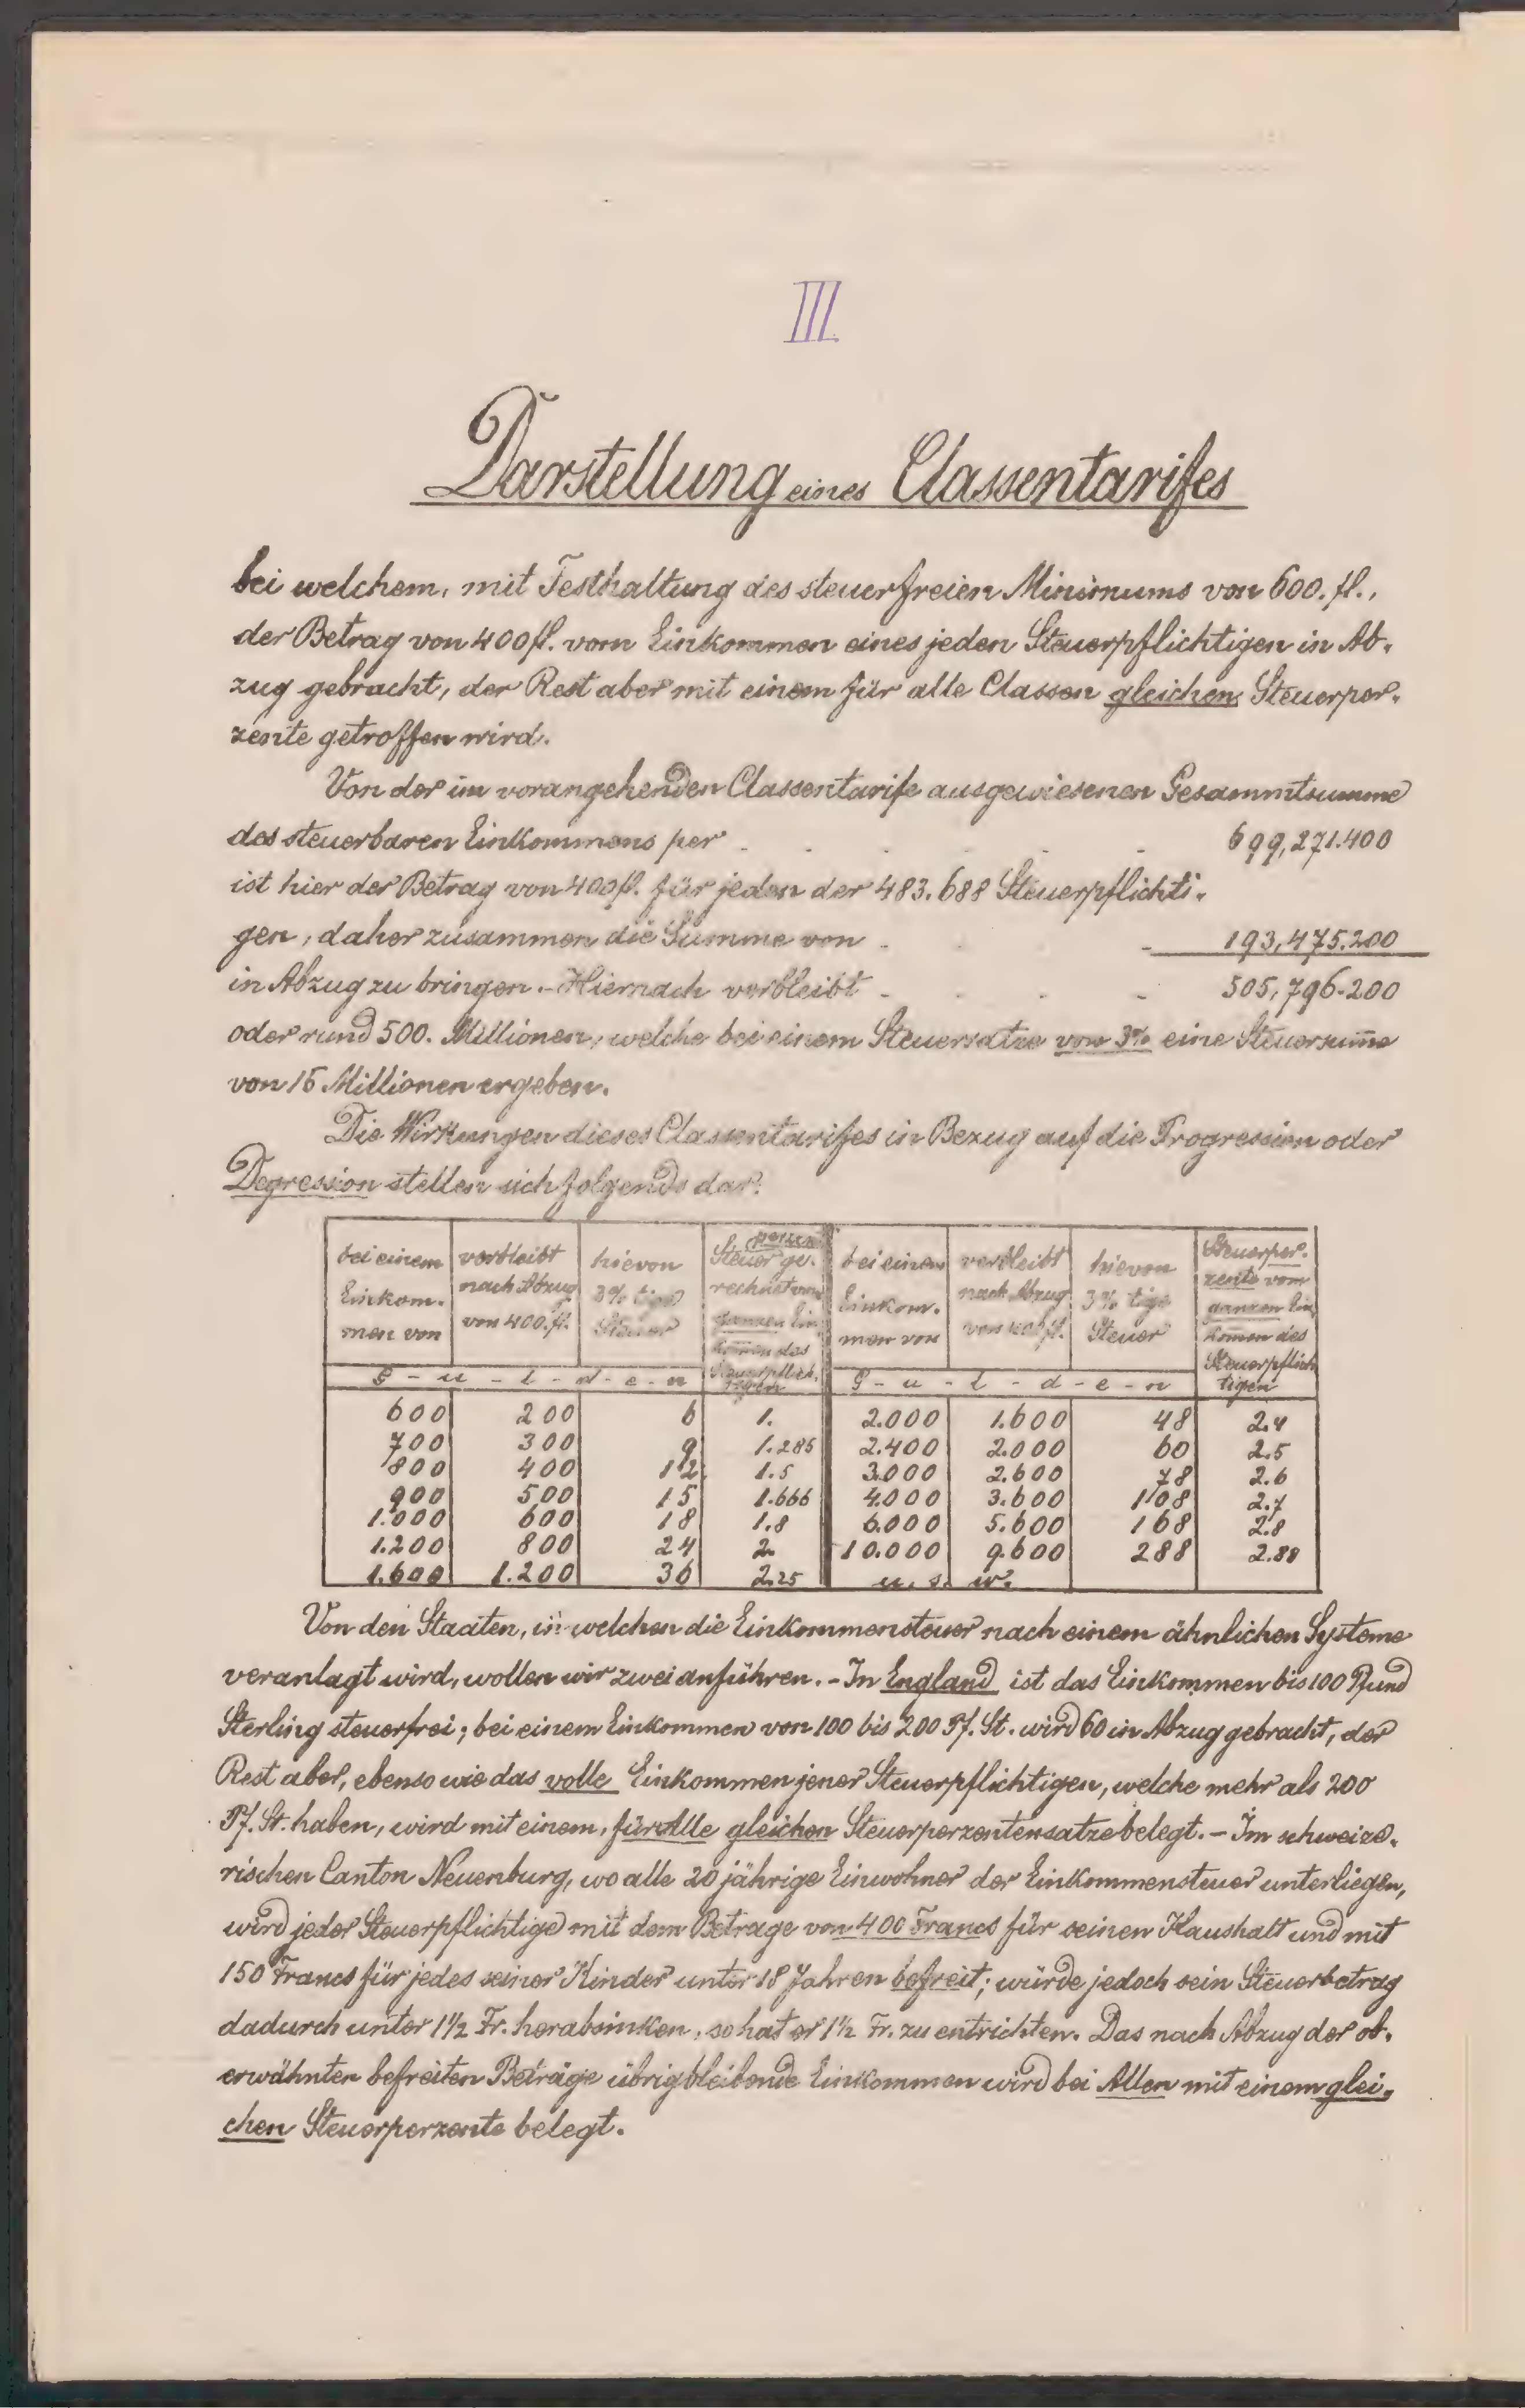 III.
Darstellung eines Classentarifes
bei welchem, mit Festhaltung des steuerfreien Minimums von 600. fl.,
der Betrag von 400 fl. vom Einkommen eines jeden Steuerpflichtigen in Ab-
zug gebracht, der Rest aber mit einem für alle Classen gleichen Steuerper-
zente getroffen wird.
Von der im vorangehenden Classentarife ausgewiesenen Gesammtsumme
des steuerbaren Einkommens per . . . . . 699,271.400
ist hier der Betrag von 400 fl. für jeden der 483.688 Steuerpflichti-
gen, daher zusammen die Summe von . . . 193,475.200
in Abzug zu bringen. - Hiernach verbleibt . . . . 505,796.200
oder rund 500. Millionen, welche bei einem Steuersatze von 3% eine Steuersum̅e
von 15 Millionen ergeben.
Die Wirkungen dieses Classentarifes in Bezug auf die Progression oder
Degression stellen sich folgends dar:
bei einem Einkom- men von | verbleibt nach Abzug von 400. fl. | hievon 3% tige Steuer | Steuer ge- rechnet vom ganzen Ein- kom̅en des Steuerpflich- tigen | bei einem Einkom- men von | verbleibt nach Abzug von 400 fl. | hievon 3% tige Steuer | Steuerper- zente vom ganzen Ein- kom̅en des Steuerpflich- tigen
G - u - l - d - e - n | G - u - l - d - e - n
600 200 6 1. 2.000 1.600 48 2.4
700 300 9 1.285 2.400 2.000 60 2.5
800 400 12 1.5 3.000 2.600 78 2.6
900 500 15 1.666 4.000 3.600 108 2.7
1.000 600 18 1.8 6.000 5.600 168 2.8
1.200 800 24 2. 10.000 9.600 288 2.88
1.600 1.200 36 2.25 u. s. w.
Von den Staaten, in welchen die Einkommensteuer nach einem ähnlichen Systeme
veranlagt wird, wollen wir zwei anführen. - In England ist das Einkommen bis 100 Pfund
Sterling steuerfrei; bei einem Einkommen von 100 bis 200 Pf. St. wird 60 in Abzug gebracht, der
Rest aber, ebenso wie das volle Einkommen jener Steuerpflichtigen, welche mehr als 200
Pf. St. haben, wird mit einem, für Alle gleichen Steuerperzentensatze belegt. - Im schweize-
rischen Canton Neuenburg, wo alle 20 jährige Einwohner der Einkommensteuer unterliegen,
wird jeder Steuerpflichtige mit dem Betrage von 400 Francs für seinen Haushalt und mit
150 Francs für jedes seiner Kinder unter 18 Jahren befreit; würde jedoch sein Steuerbetrag
dadurch unter 1 1/2 Fr. herabsinken, so hat er 1 1/2 Fr. zu entrichten. Das nach Abzug der ob-
erwähnten befreiten Beträge übrigbleibende Einkommen wird bei Allen mit einem glei-
chen Steuerperzente belegt.